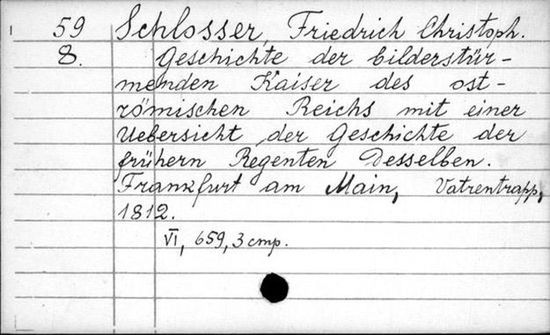 59 Schlosser, Friedrich Christoph.
8. Geschichte der bilderstür-
menden Kaiser des ost-
römischen Reichs mit einer
Uebersicht der Geschichte der
frühern Regenten Desselben.
Frankfurt am Main, Vatrentrapp,
1812.
VI, 659, 3 стр.